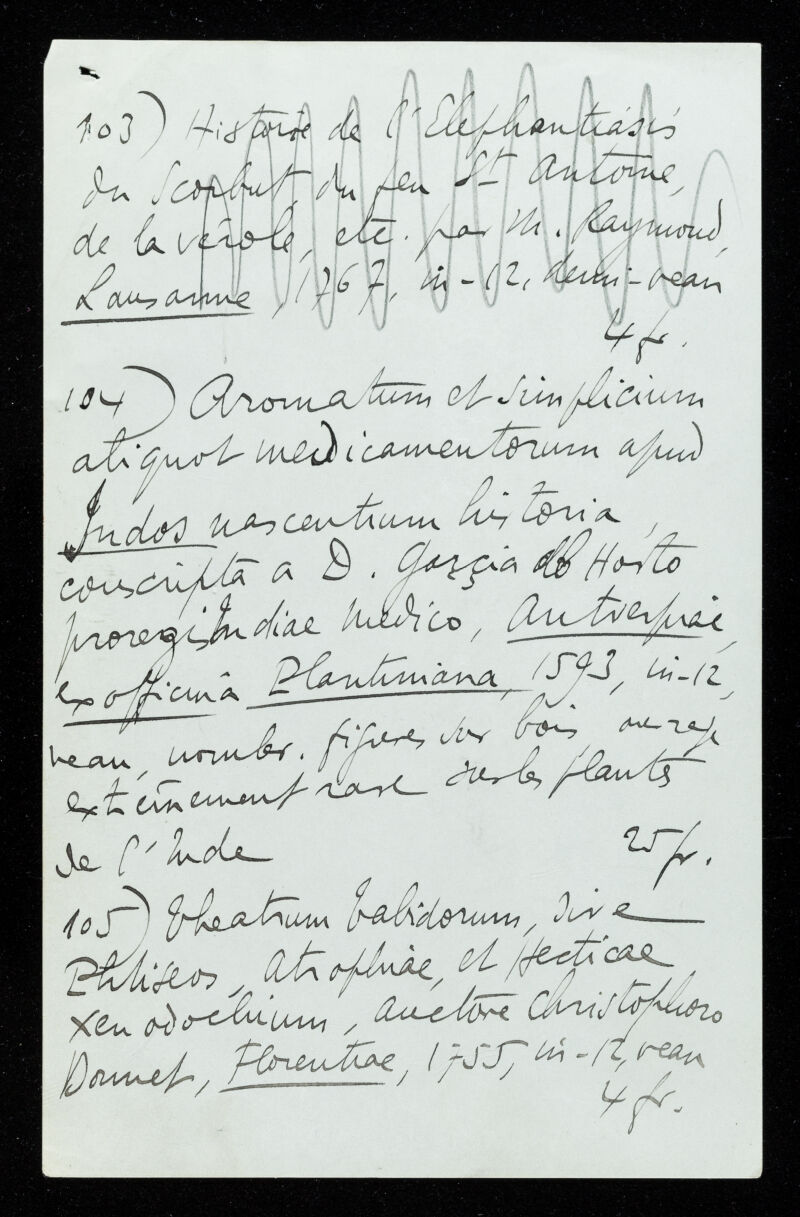 103) Historie de l'Elephantiasis
du Scorbut, du feu St Antoine,
de la vérole, etc. par M. Raymond,
Lausanne, 1767, in-12, demi-veau
4 fr.
104) Aromatum et simplicium
aliquot medicamentorum apud
Indos nascentium historia,
conscripta a D. Garçia ab Horto
proregis Indiae Medico, Antverpiae,
ex officinâ Plantiniana, 1593, in-12,
veau, nombr. figures sur bois, ouvrage
extrêmement rare sur les plantes
de l'Inde 25 fr.
105) Theatrum Tabidorum, sive
Phtiseos, Atrophiae, et Hecticae
xenodochium, auctore Christophoro
Bennet, Florentiae, 1755, in-12, veau
4 fr.